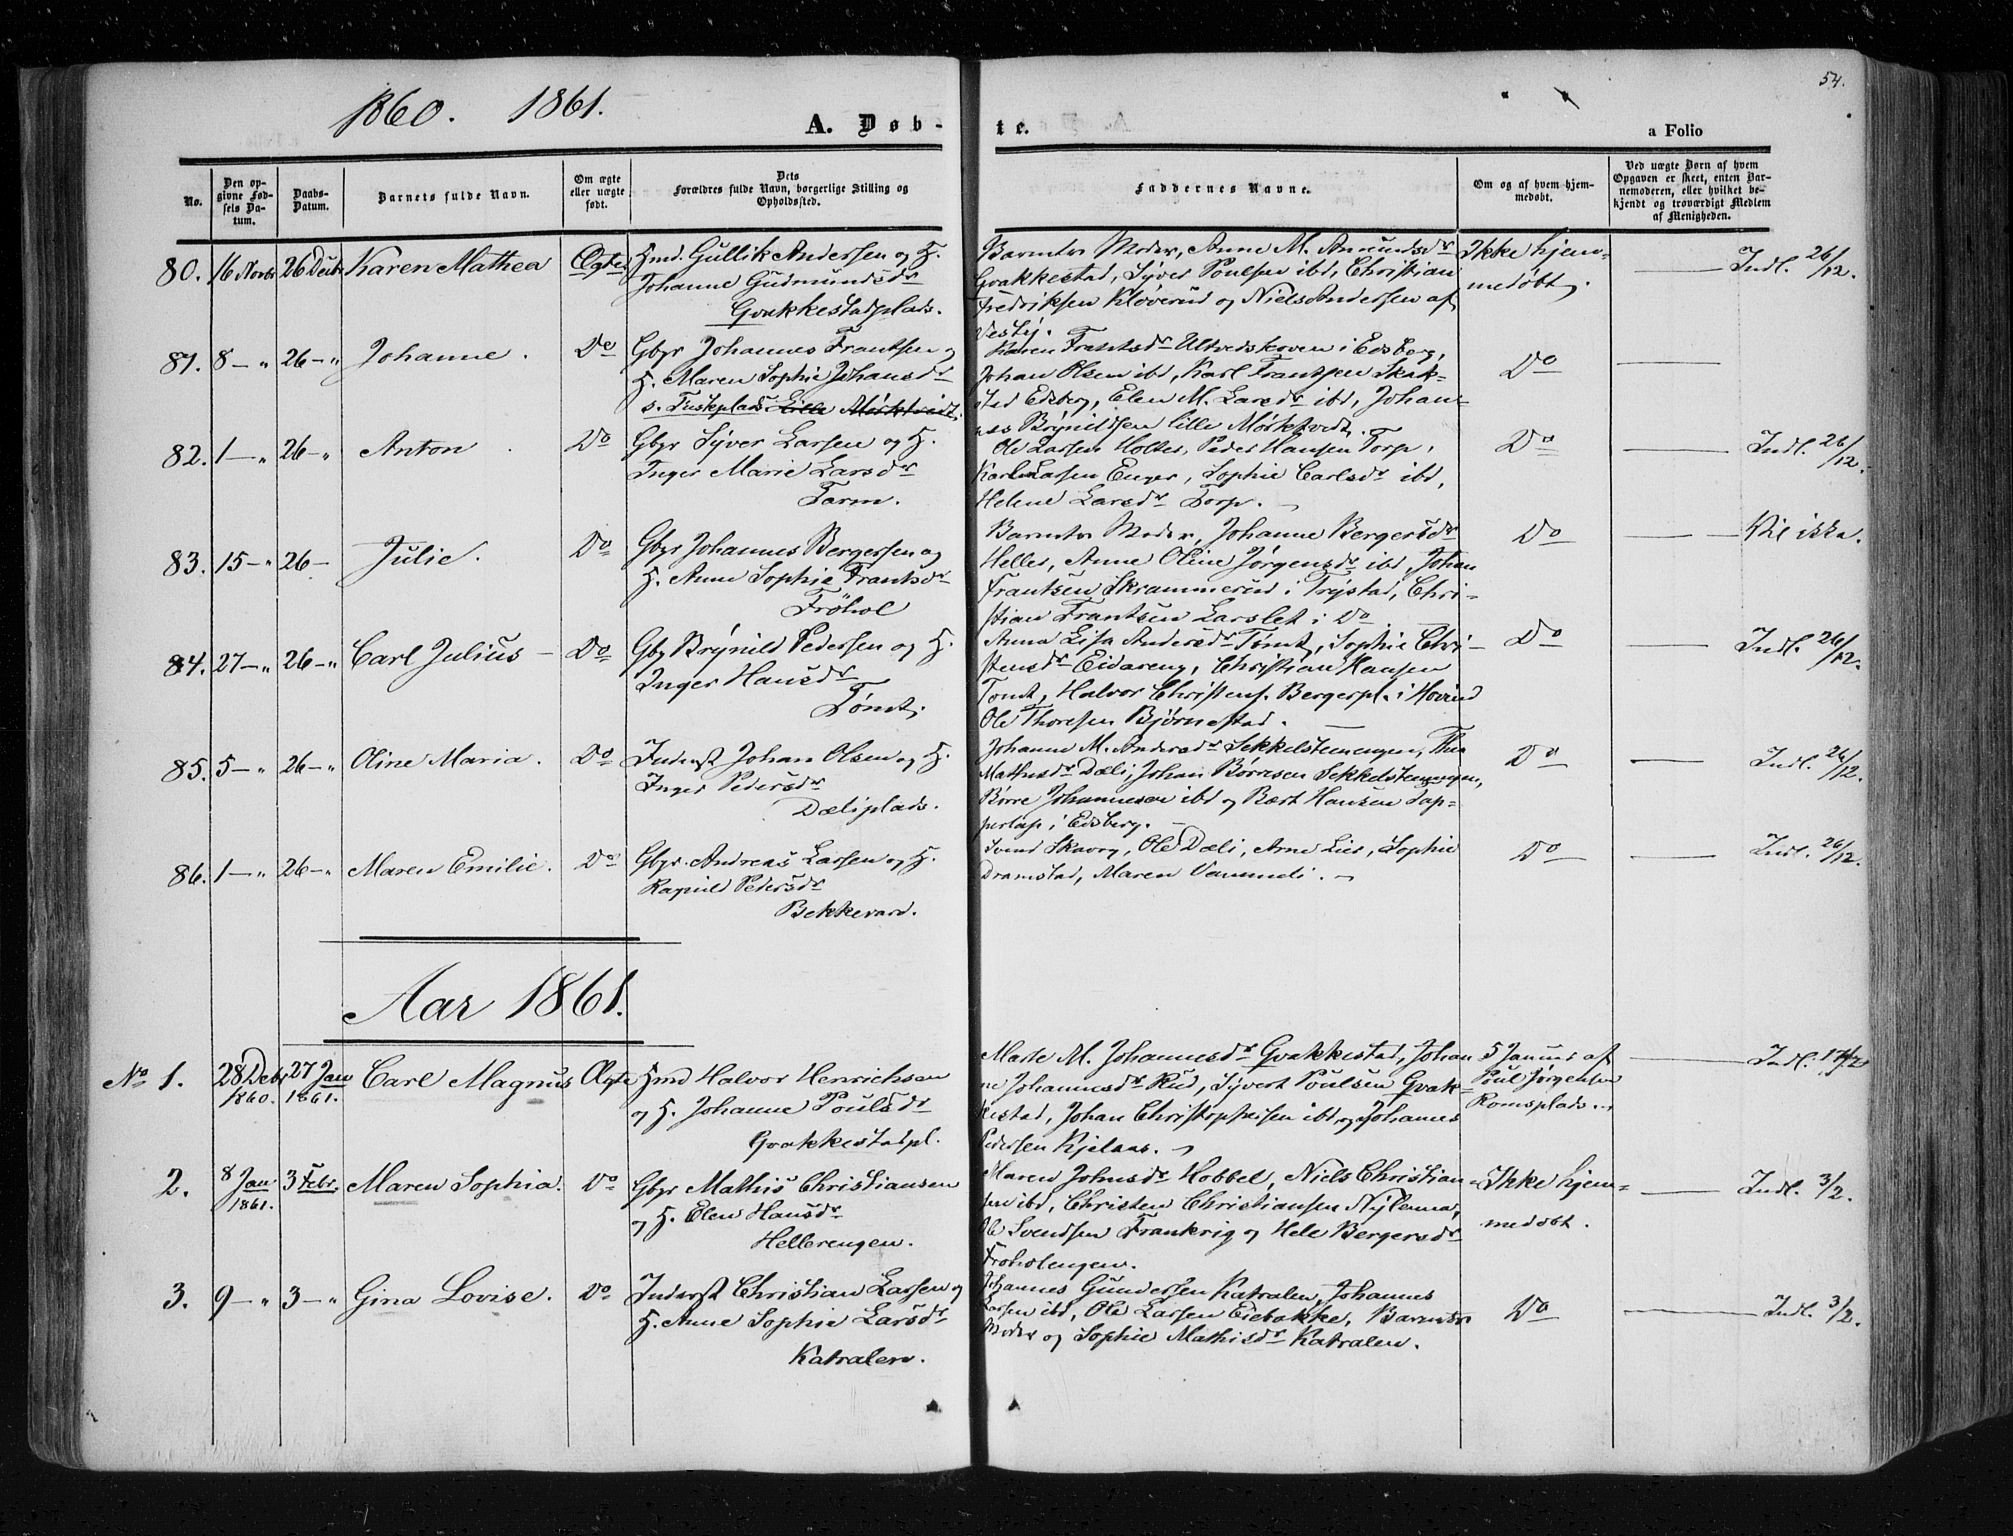 1860. 1861.
A. Døb-
te.
a Folio
54.
No.
Den op-
givne Fød-
sels Da-
tum.
Daabs-
Datum.
Barnets fulde Navn.
Om ægte
eller uægte
født.
Dets
Forældres fulde Navn, borgerlige Stilling og
Opholdssted.
Faddernes Navne.
Om og af hvem hjem-
medøbt.
Ved uægte Børn af hvem
Opgaven er skeet, enten Bar-
nemoderen, eller hvilket be-
kjendt og troværdigt Medlem
af Menigheden.
80. 16 Novbr 26 Decbr Karen Mathea Ægte
Hmd. Gullik Andersen og H.
Johanne Gudmundsdr
Gvakkestadplads.
Barnets Moder, Anne M. Amundsdr
Gvakkestad, Syver Poulsen ibd, Christian
Fredriksen Kløverud og Niels Andersen af
Vestby.
Ikke hjem-
medøbt.
Indl. 26/12.
81. 8 – " 26 – " Johanne. Do
Gbr Johannes Frantsen og
H. Maren Sophie Johansdr
Lille Mørktvedt.
Karen Frantsdr i Edsberg,
Johan Olsen ibd, Karl Frantsen Skak-
stad Edsberg, Elen M. Larsdr ibd, Johan-
nes Brynildsen lille Mørktvedt.
Do
82. 1 – " 26 – " Anton. Do
Gbr Syver Larsen og H.
Inger Marie Larsdr
Farm.
Ole Larsen Holter, Peder Hansen Torp,
Karl Larsen Enger, Sophie Carlsdr ibd,
Helene Larsdr Torp.
Do
Indl. 26/12.
83. 15 – " 26 – Julie. Do
Gbr Johannes Bergersen og
H. Anne Sophie Frantsdr
Frøhol
Barnets Moder, Johanne Bergersdr
Heller, Anne Oline Jørgensdr ibd, Johan
Frantsen Skrammerud i Trøgstad, Chri-
stian Frantsen Larslet i Do
Do
Vil ikke.
84. 27 – " 26 – " Carl Julius – Do
Gbr Brynild Pedersen og H.
Inger Hansdr
Tomt.
Anna Lisa Andersdr Tomt, Sophie Chri-
stensdr Eidareng, Christian Hansen
Tomt, Halvor Christens. Bergerpl. i Hovind
Ole Thoresen Bjørnestad.
Do
Indl. 26/12.
85. 5 – " 26 – " Oline Maria. Do
Inderst Johan Olsen og H.
Inger Pedersdr
Dæliplads.
Johanne M. Andersdr Sekkelstenengen, Thea
Mathisdr Dæli, Johan Børresen Sekkelstenengen,
Børre Johannesen ibd og Bært Hansen Lap-
perlap i Edsberg.
Do
Indl. 26/12.
86. 1 – " 26 – " Maren Emilie. Do
Gbr. Andreas Larsen og H.
Ragnild Pedersdr
Bekkevard.
Svend Skavog, Ole Dæli, Arne Lier, Sophie
Dramstad, Maren Vammeli.
Do
Indl. 26/12.
Aar 1861.
No 1. 28 Debr 1860. 27 Jan 1861. Carl Magnus Ægte
Hmd Halvor Henrichsen
og H. Johanne Poulsdr
Gvakkestadpl.
Marte M. Johannesdr Gvakkestad, Johan
ne Johannesdr Rud, Syvert Poulsen Gvak-
kestad, Johan Christophersen ibd og Johannes
Pedersen Kjelaas.
5 Januar af
Poul Jørgensen
Romsplads.
Indl. 17/2
2. 8 Jan 1861. 3 Febr. Maren Sophia. Do
Gbr Mathis Christiansen
og H. Elen Hansdr
Hellerengen.
Maren Johnsdr Hobbel, Niels Christian-
sen ibd, Christen Christiansen Nylenna,
Ole Svendsen Frankrig og Hele Bergersdr
Froholengen.
Ikke hjem-
medøbt.
Indl. 3/2.
3. 9 – " 3 – " Gina Lovise. Do
Inderst Christian Larsen og
H. Anne Sophie Larsdr
Katralen.
Johannes Gundersen Katralen, Johannes
Larsen ibd, Ole Larsen Eiebakke, Barnets
Moder og Sophie Mathisdr Katralen.
Do
Indl. 3/2.